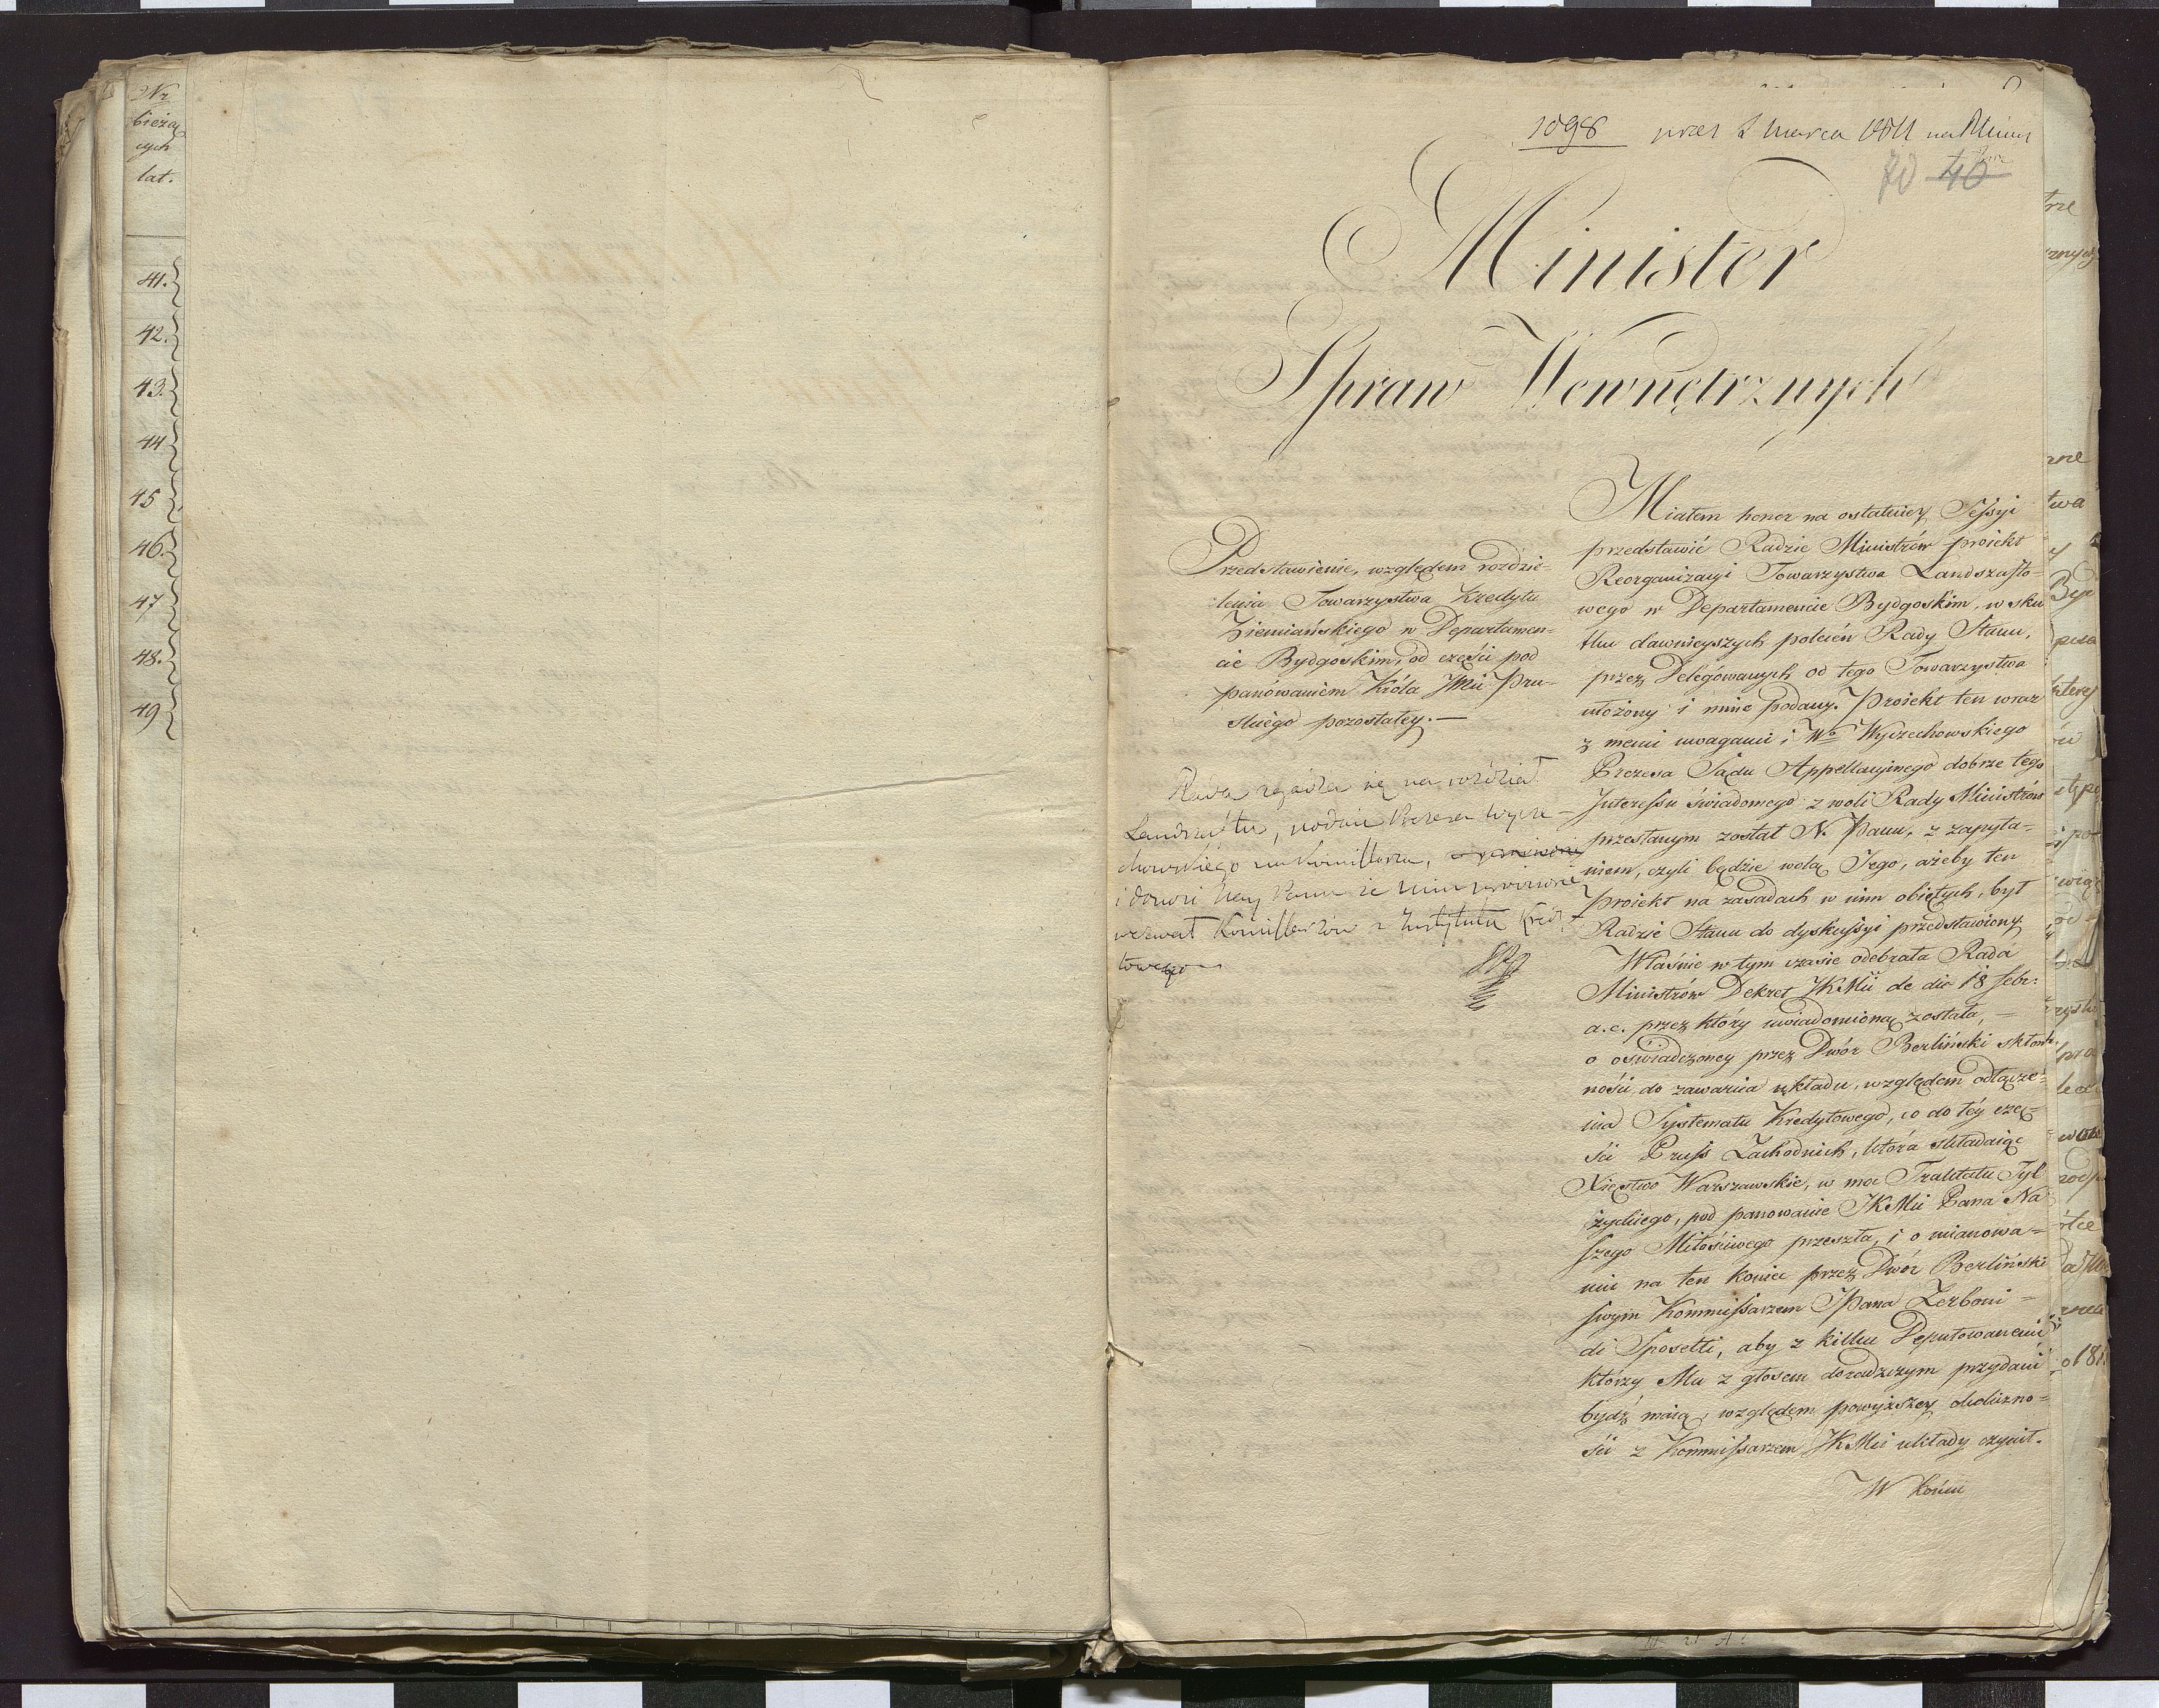 Nr
bieżą
cych
lat.
41.
42.
43.
44
45
46.
47
48.
49
1098 prez 2 marca 1811
70 40
Minister
Spraw Wewnętrznych
Przedstawienie, względem rozdzie-
lenia Towarzystwa Kredytu
Ziemiańskiego w Departamen-
cie Bydgoskim, od części pod
panowaniem Króla JMci Pru-
skiego pozostałey.—
Rada zgadza się na rozdział
Landszaftu, podaie Prezesa Wycze-
chowskiego na Kommissarza,
i donosi Nay. Panu że
wezwał Kommissarzów z Instytutu Kredy-
towego
Miałem honor na ostatniey Sessyi
przedstawić Radzie Ministrów proiekt
Reorganizacyi Towarzystwa Landszafto-
wego w Departamencie Bydgoskim, w sku
tku dawnieyszych poleceń Rady Stanu,
przez Delegowanych od tego Towarzystwa
ułożony i mnie podany. Proiekt ten wraz
z memi uwagami i Wo Wyczechowskiego
Prezesa Sądu Appellacyinego dobrze tego
Interessu świadomego z woli Rady Ministrów
przesłanym został N. Panu, z zapyta-
niem, czyli będzie wolą Jego, ażeby ten
Proiekt na zasadach w nim obiętych, był
Radzie Stanu do dyskussyi przedstawiony
Właśnie w tym czasie odebrała Rada
Ministrów Dekret JKMci de dio 18 febr:
a.c. przez który uwiadomioną została, —
o oświadczoney przez Dwór Berliński skłon-
ności do zawarcia układu, względem odłącze-
nia Systematu Kredytowego, co do téy czę-
ści Pruss Zachodnich, która składaiąc
Xięstwo Warszawskie, w moc Traktatu Tyl
życkiego, pod panowanie JKMci Pana Na
szego Miłościwego przeszła, i o mianowa-
niu na ten koniec przez Dwór Berliński
swym Kommissarzem JPana Zerboni-
di Sposetti, aby z kilku Deputowanemi
którzy Mu z głosem doradczym przydani
bydź maią, względem powyższey okoliczno-
ści z Kommissarzem JKMci układy czynił.
W końcu